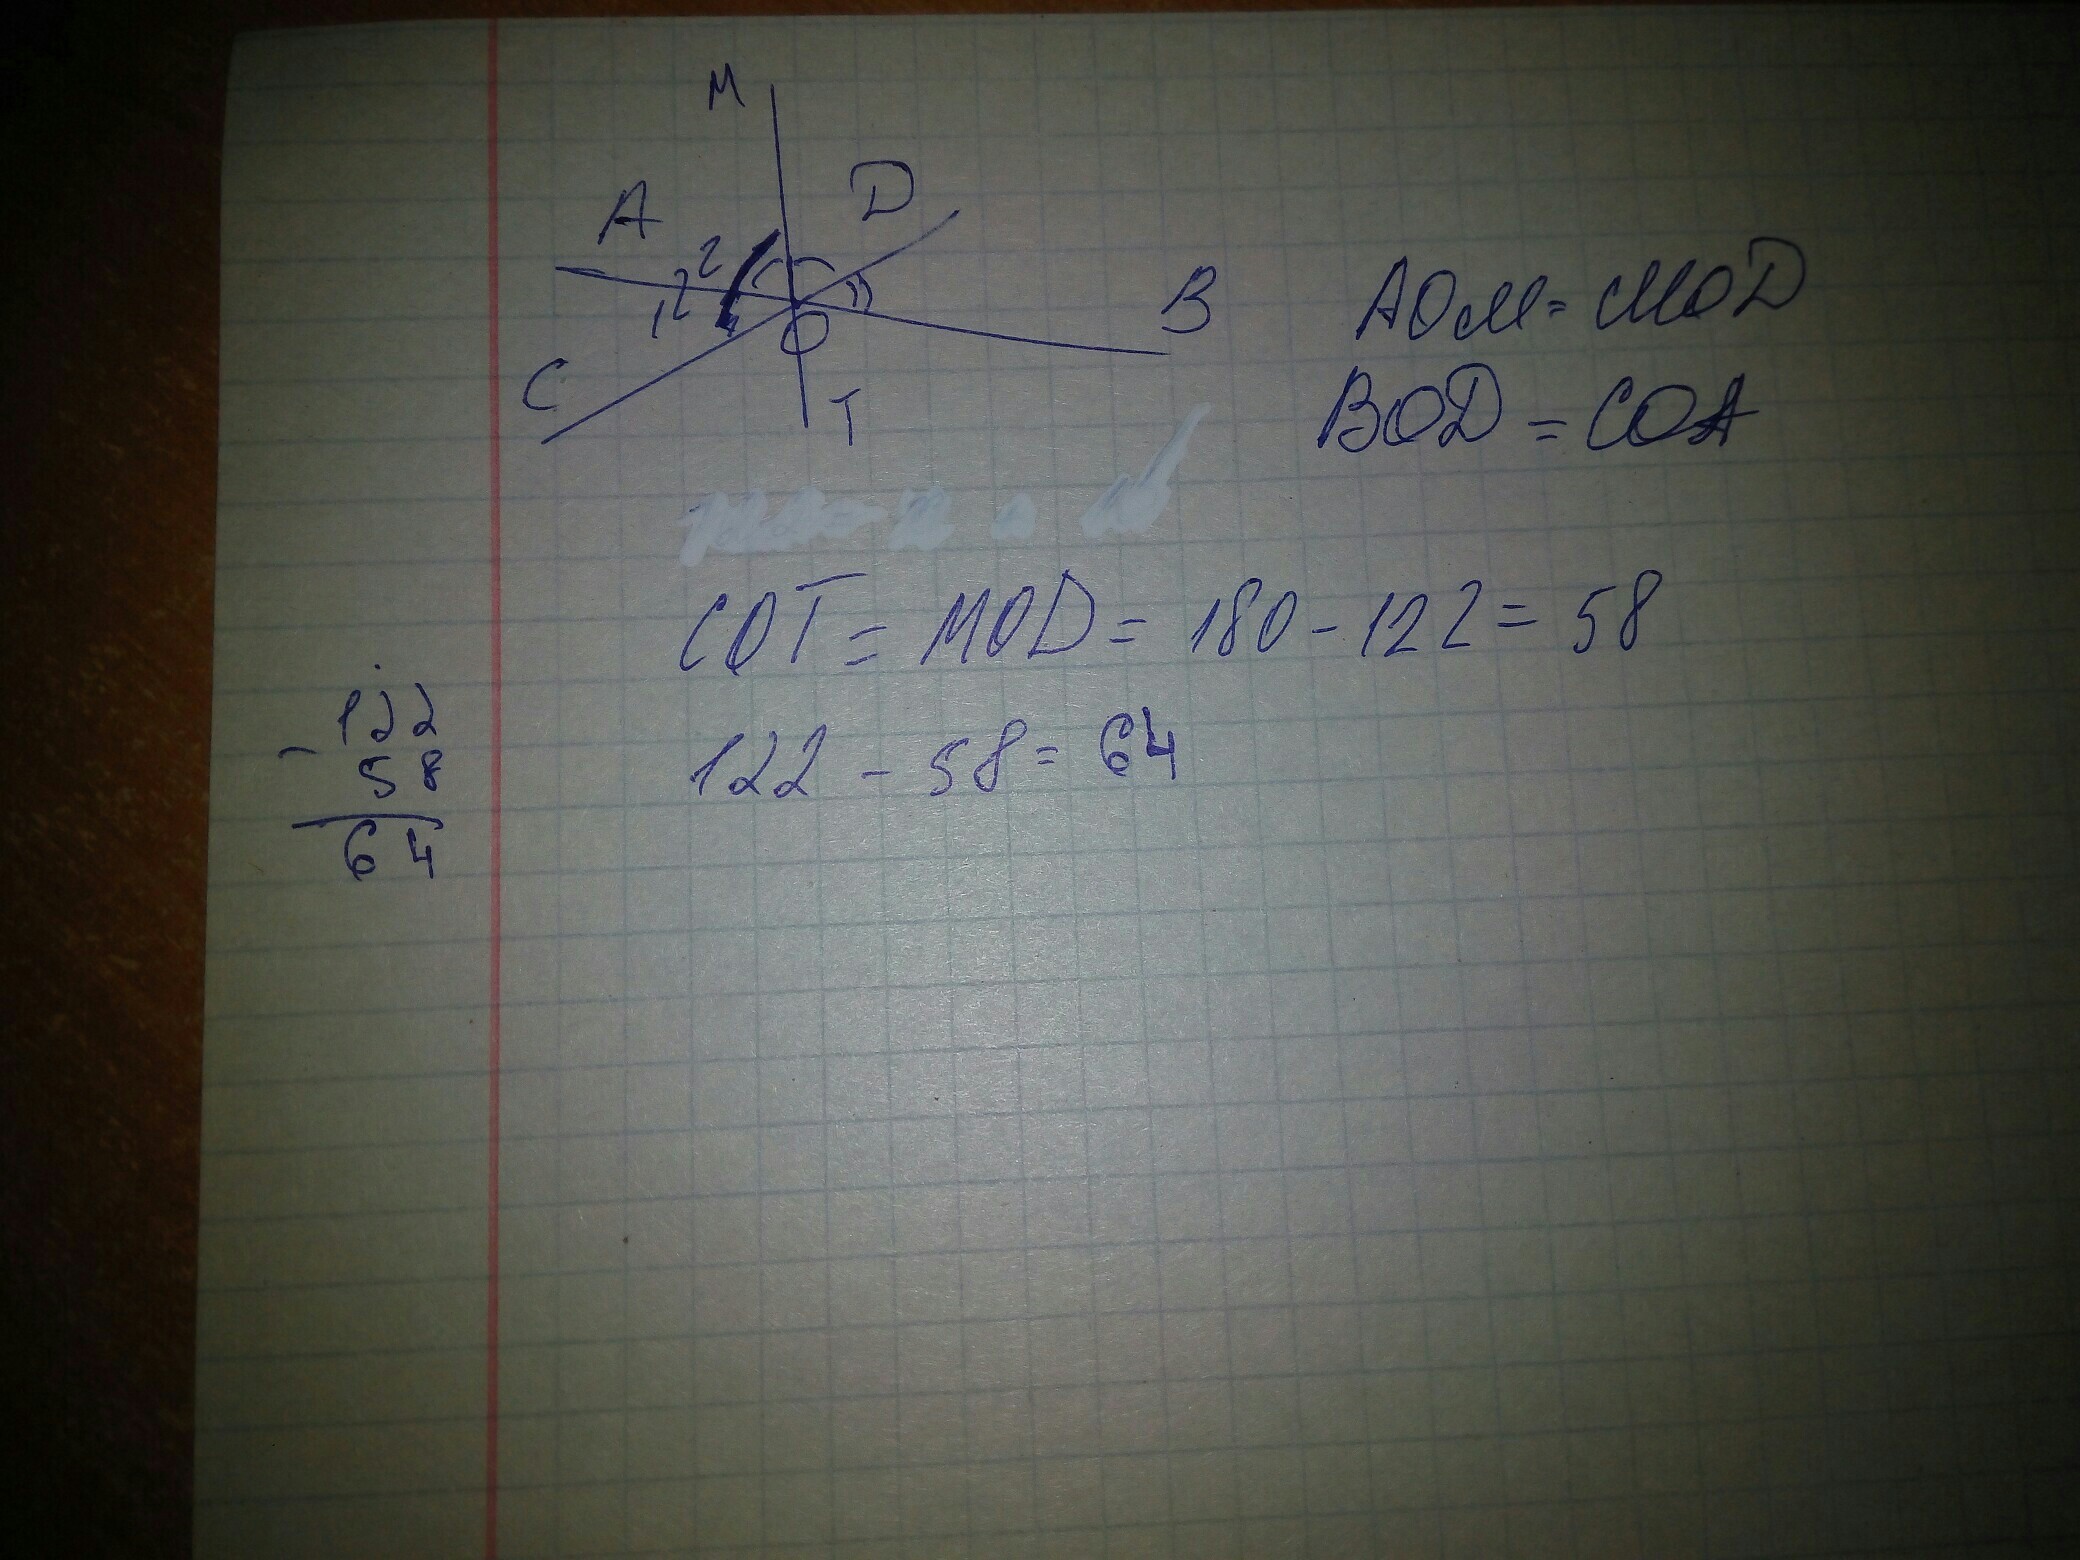 M
A
D
122
2
B
C
O
T
AOM = MOD
BOD = COA
COT = MOD = 180 - 122 = 58
122 - 58 = 64
- 122
58
64